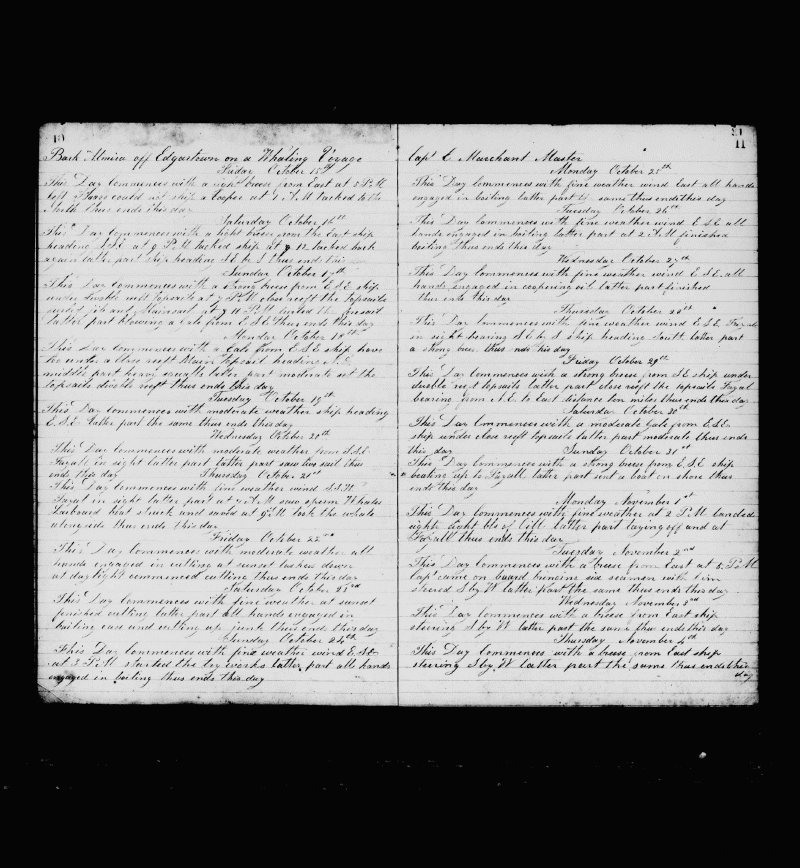 10
Bark Almira off Edgartown on a Whaling Voyage
Friday October 15th
This Day Commences with a light breeze from East at 5 P.M
left Flores could not ship a Cooper at 4 A.M tacked to the
North thus ends this day
Saturday October 16th
This Day Commences with a light breeze from the East ship
heading S.S.E at 9 P.M tacked ship at 12 tacked back
again latter part ship heading S E by S thus ends this
Sunday October 17th
This Day Commences with a strong breeze from E.S.E ship
under double reeft topsails at 7 P.M close reeft the topsails
furled jib and Mainsail at 4 A.M furled the foresail
latter part blowing a Gale from E.S.E thus ends this day
Monday October 18th
This Day Commences with a Gale from E S E ship hove
too under a close reeft Main Topsail heading N.E.
middle part heavy squalls latter part moderate set the
topsails double reeft thus ends this day
Tuesday October 19th
This Day Commences with moderate weather ship heading
E.S.E latter part the same thus ends this day
Wednesday October 20th
This Day Commences with moderate weather from S.S.E
Fayall in sight latter part latter part saw two sail thus
ends this day Thursday October 21st
This Day Commences with fine weather wind S.S.W
Fayal in sight latter part at 7 A.M saw sperm Whales
Larboard boat struck and saved at 9 A.M took the whale
alongside thus ends this day
Friday October 22nd
This Day Commences with moderate weather all
hands engaged in cutting at sunset lashed down
at daylight commenced cutting thus ends this day
Saturday October 23rd
This Day Commences with fine weather at sunset
finished cutting latter part all hands engaged in
bailing case and cutting up junk thus ends this day
Sunday October 24th
This Day Commences with fine weather wind E.S.E
at 3 P.M started the try works latter part all hands
engaged in boiling thus ends this day
11
Capt C Marchant Master
Monday October 25th
This Day Commences with fine weather wind East all hands
engaged in boiling latter part the same thus ends this day
Tuesday October 26th
This Day Commences with fine weather wind E.S.E all
hands engaged in boiling latter part at 2 A.M finished
boiling thus ends this day
Wednesday October 27th
This Day Commences with fine weather wind E.S.E. all
hands engaged in coopering oil latter part finished
thus ends this day
Thursday October 28th
This Day Commences with fine weather wind E.S.E. Fayal
in sight bearing S E by S ship heading South latter part
a strong breeze thus ends this day
Friday October 29th
This Day Commences with a strong breeze from S E ship under
double reeft topsails latter part close reeft the topsails Fayal
bearing from N.E. to East distance ten miles thus ends this day
Saturday October 30th
This Day Commences with a moderate Gale from E.S.E.
ship under close reeft topsails latter part moderate thus ends
this day Sunday October 31st
This Day Commences with a strong breeze from E.S.E ship
beating up to Fayall latter part sent a boat on shore thus
ends this day
Monday November 1st
This Day Commences with fine weather at 2 P.M landed
eighty Eight bbls of Oil latter part laying off and at
Fayall thus ends this day
Tuesday November 2nd
This Day Commences with a breeze from East at 5 P.M
Capt came on board bringing six seamen with him
steered S by W latter part the same thus ends this day
Wednesday November 3rd
This Day Commences with a breeze from East ship
steering S by W latter part the same thus ends this day
Thursday November 4th
This Day Commences with a breeze from East ship
steering S by W latter part the same thus ends this
day